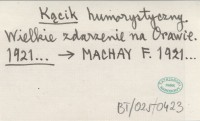 Kącik humorystyczny.
Wielkie zdarzenie na Orawie.
1921... → MACHAY F. 1921...
BT/025/0423